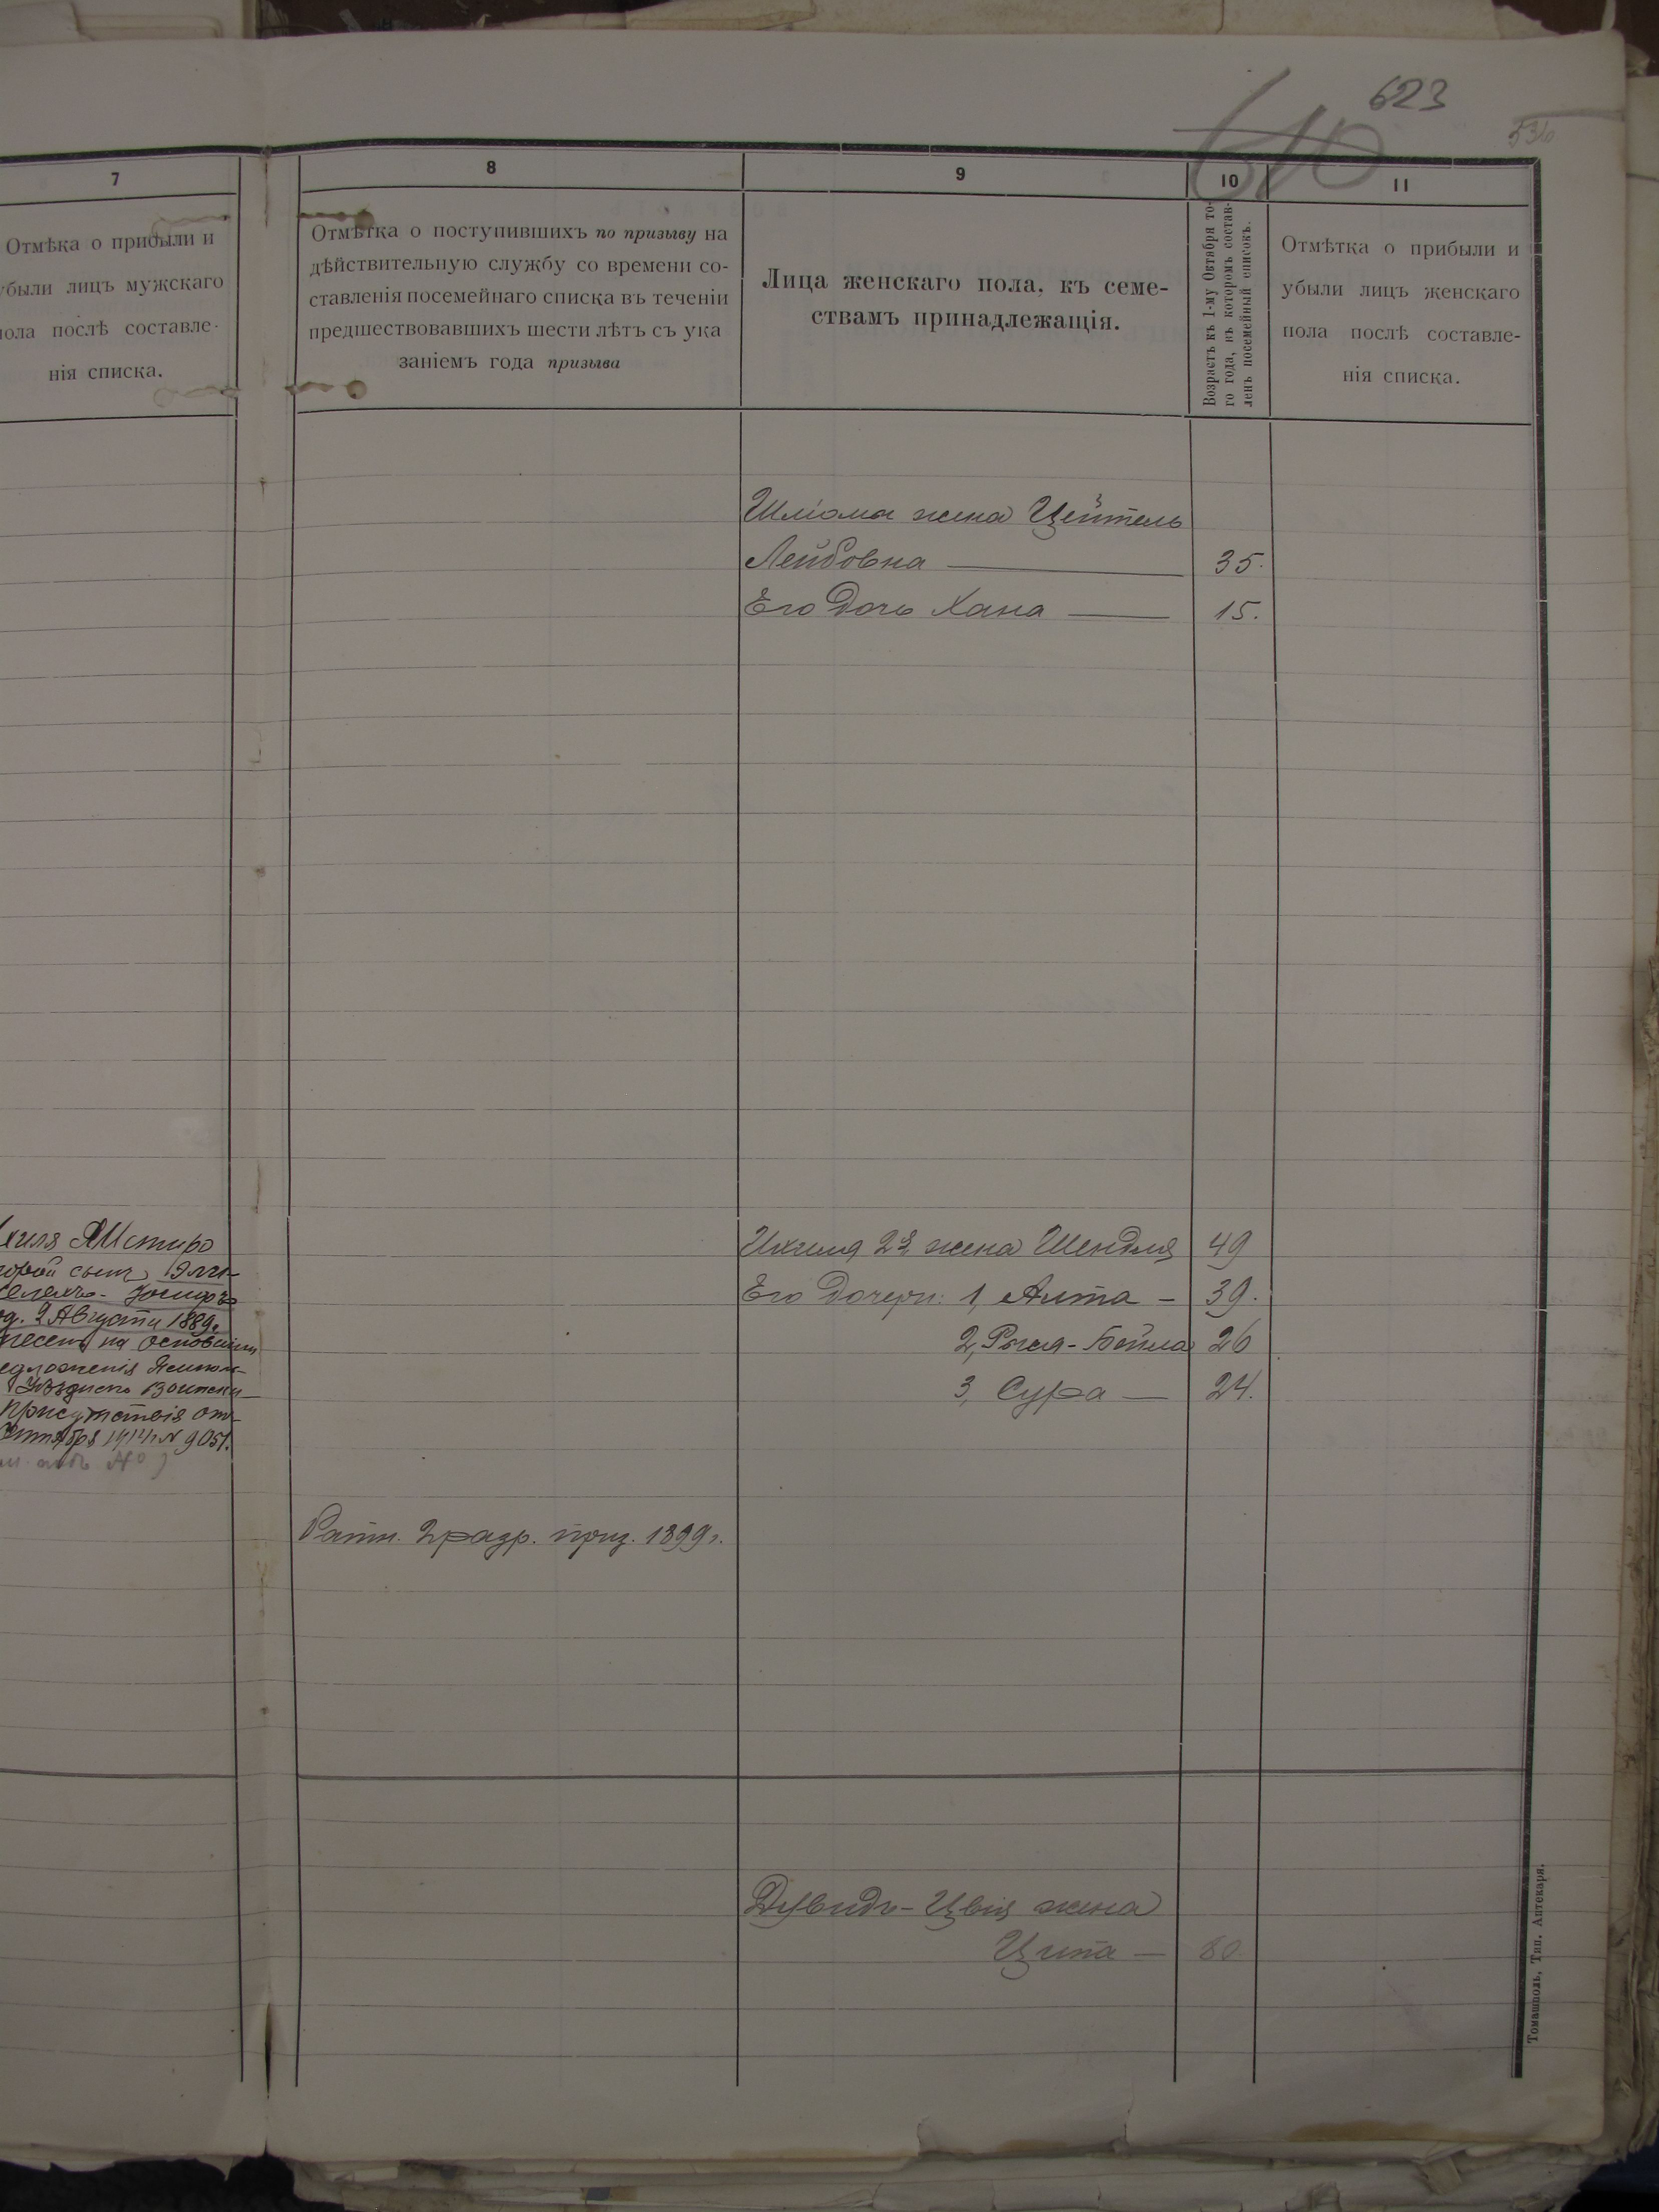 623
610
530
7
8
9
10
11
Отмѣка о прибыли и
убыли лицъ мужскаго
пола послѣ составле-
нія списка.
Отмѣтка о поступившихъ по призыву на
дѣйствительную службу со времени со-
ставленія посемейнаго списка въ теченіи
предшествовавшихъ шести лѣтъ съ ука
заніемъ года призыва
Лица женскаго пола, къ семе-
ствамъ принадлежащія.
Возрастъ къ 1-му Октября то-
го года, въ которомъ состав-
ленъ посемейный списокъ.
Отмѣтка о прибыли и
убыли лицъ женскаго
пола послѣ составле-
нія списка.
Шліома жена Цейтель
Лейбовна — 35.
Его дочь Хана — 15.
Ихиля 2я жена Шендля 49
Его дочери: 1, Алта — 39.
2, Рыся-Бейла 26
3, Сура — 24.
сынъ
Іосифъ
2 Августа 1889г.
на основаніи
Воински
присутствія отъ
1914г № 9051.
Ратн. 2 разр. приз. 1899г.
Дувидъ-Цвія жена
Цита — 80
Томашполь, Тип. Аптекаря.